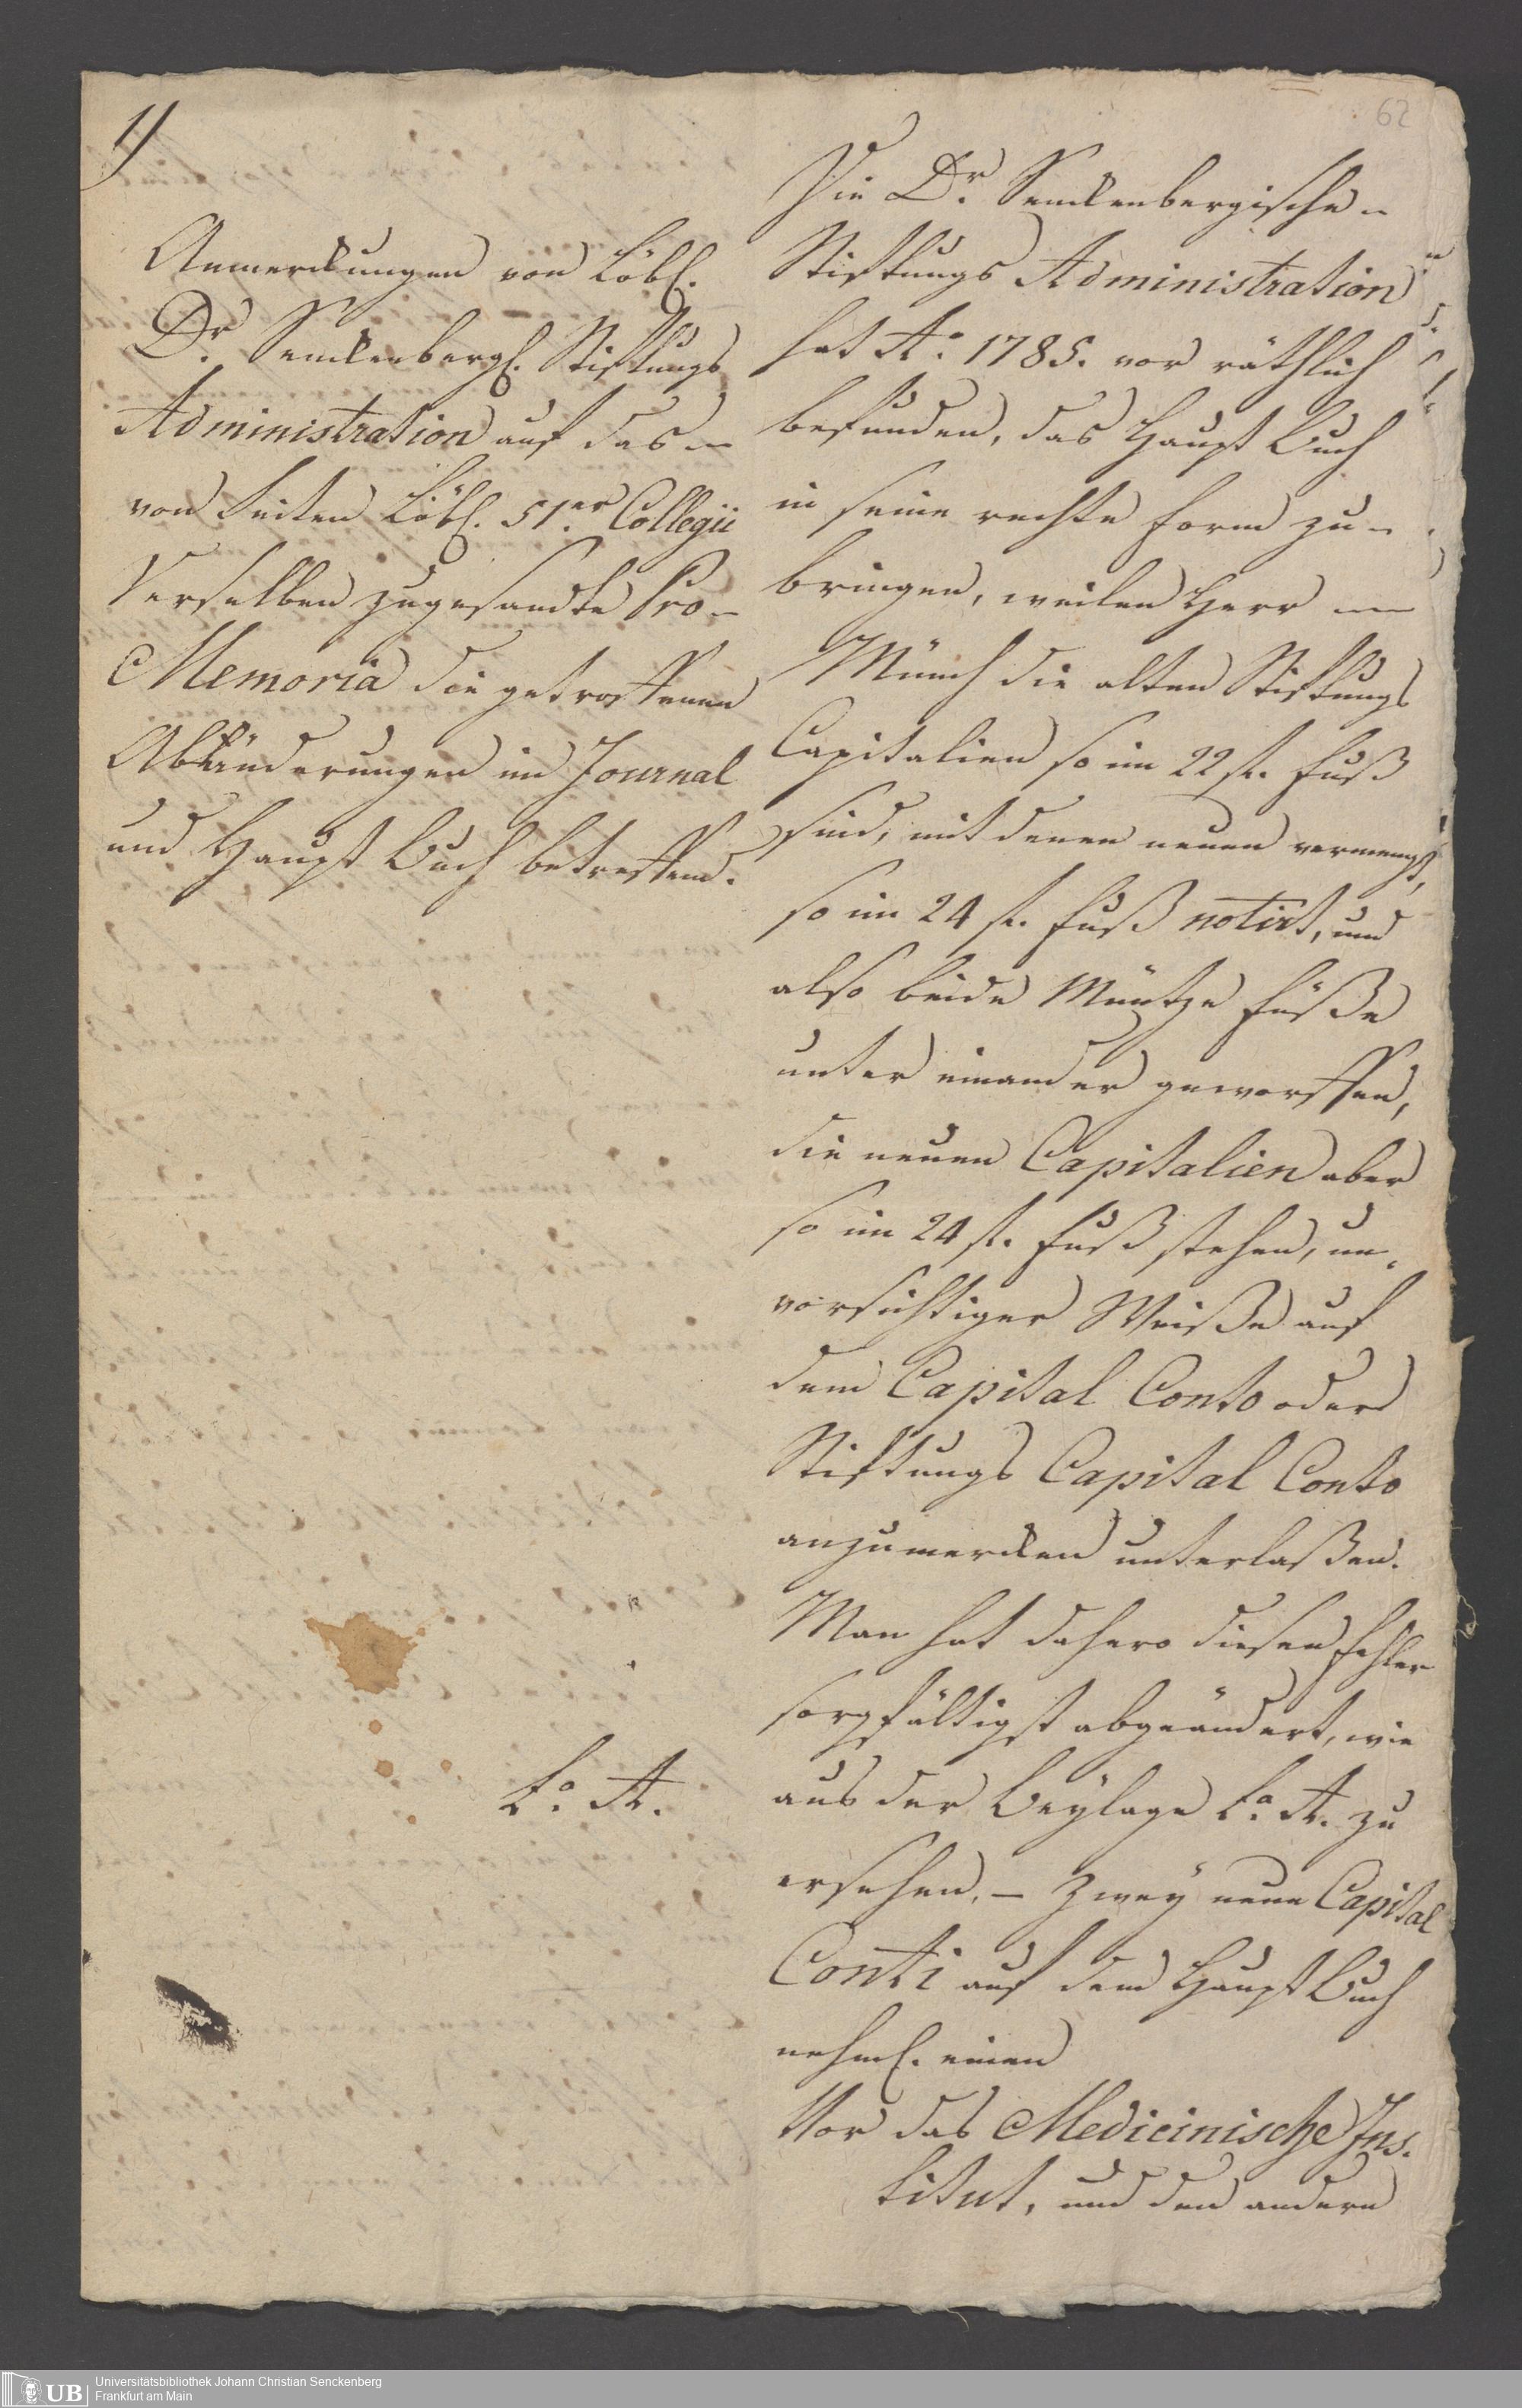 1)
62
Anmerckungen von Löbl.
Dr. Senckenbergl. Stiftungs
Administration auf das
von Seiten Löbl. 51er Collegii
Derselben zugesandte Pro-
Memoria die getroffenen
Abänderungen im Journal
und Haupt Buch betreffend.
Lª. A.
Die Dr. Senckenbergische
Stiftungs Administration
hat Aº. 1785. vor räthlich
befunden, das Haupt Buch
in seine rechte Form zu
bringen, weilen Herr
Münch die alten Stiftungs
Capitalien so im 22 fl. Fuß
sind, mit denen neuen vermengt,
so im 24 fl. Fuß notirt, und
also beide Müntze Füße
unter einander geworffen,
die neuen Capitalien aber
so im 24 fl. Fuß stehen, un-
vorsichtiger Weiße auf
dem Capital Conto oder
Stiftungs Capital Conto
anzumercken unterlaßen.
Man hat dahero diesen Fehler
sorgfältigst abgeändert, wie
aus der Beylage Lª. A. zu
ersehen, – zwey neue Capital
Conti auf dem Haupt Buch
nehml. einen
Vor das Medicinische Ins-
titut, und den andern
UB
Universitätsbibliothek Johann Christian Senckenberg
Frankfurt am Main